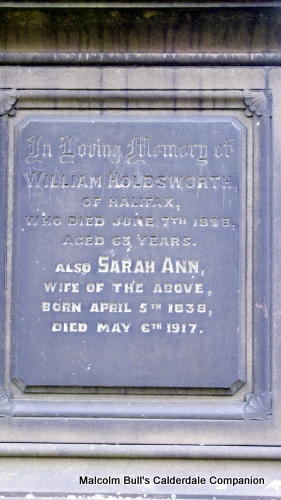 In Loving Memory of
WILLIAM HOLDSWORTH,
OF HALIFAX,
WHO DIED JUNE 7TH 1898,
AGED 63 YEARS.
ALSO SARAH ANN,
WIFE OF THE ABOVE,
BORN APRIL 5TH 1838,
DIED MAY 6TH 1917.
Malcolm Bull's Calderdale Companion